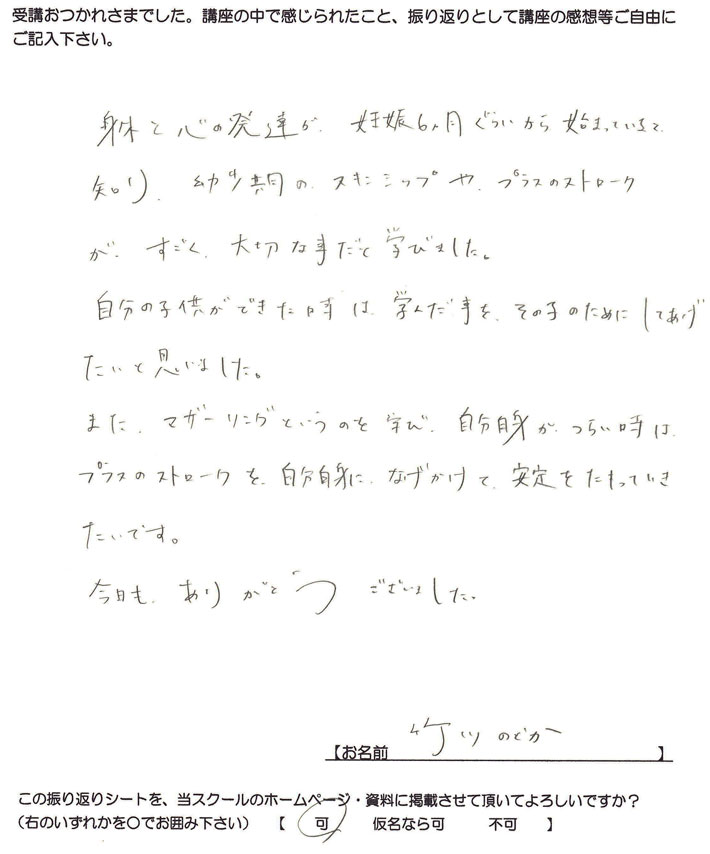 受講おつかれさまでした。講座の中で感じられたこと、振り返りとして講座の感想等ご自由に
ご記入下さい。
身体と心の発達が、妊娠6ヶ月ぐらいから始まっていると
知り、幼少期の、スキンシップや、プラスのストローク
が、すごく、大切な事だと学びました。
自分の子供ができた時は、学んだ事を、その子のためにしてあげ
たいと思いました。
また、マザーリングというのを学び、自分自身が、つらい時は、
プラスのストロークを、自分自身に、なげかけて、安定をたもっていき
たいです。
今日も、ありがとうございました。
【お名前 竹川 のどか 】
この振り返りシートを、当スクールのホームページ・資料に掲載させて頂いてよろしいですか？
（右のいずれかを〇でお囲み下さい） 【 可 仮名なら可 不可 】